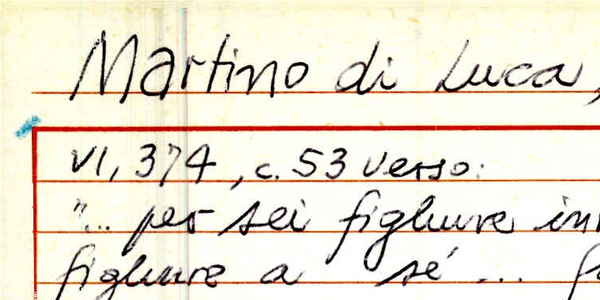 Martino di Luca,
VI, 374, c. 53 verso:
"... per sei fighure in
fighure a sé ...